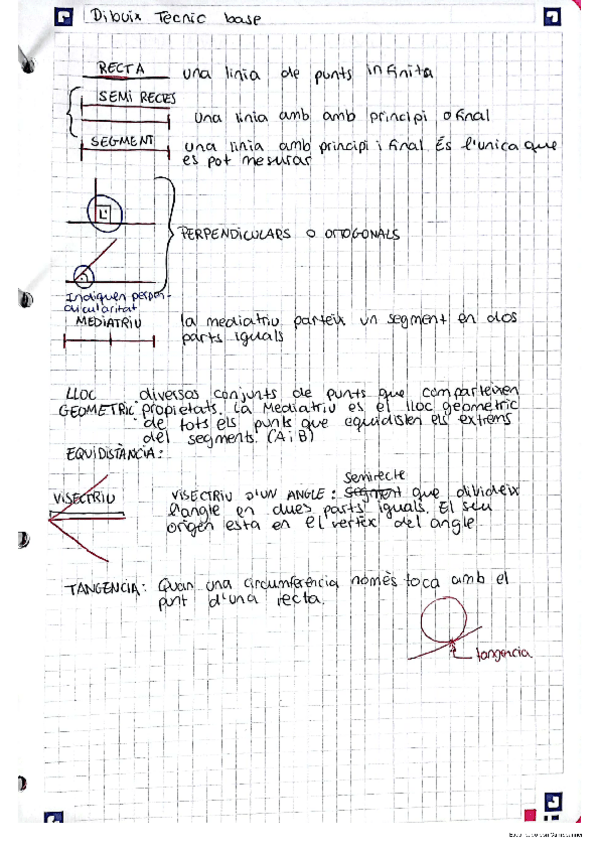 Dibuix Tecnic base
RECTA una linia de punts infinita
SEMI RECTES
una linia amb amb principi o final
SEGMENT una linia amb principi i final. És l'unica que
es pot mesurar
PERPENDICULARS o OTOGONALS
Indiquen perpen-
dicularitat
MEDIATRIU la mediatriu parteix un segment en dos
parts iguals
LLOC diversos conjunts de punts que comparteixen
GEOMETRIC: propietats. La Mediatriu es el lloc geometric
de tots els punts que equidisten els extrems
del segments. (A i B)
EQUIDISTÀNCIA:
semirecte
VISECTRIU VISECTRIU D'UN ANGLE: segment que divideix
l'angle en dues parts iguals. El seu
origen esta en el vertex del angle
TANGENCIA: Quan una circumferència només toca amb el
punt d'una recta.
tangencia